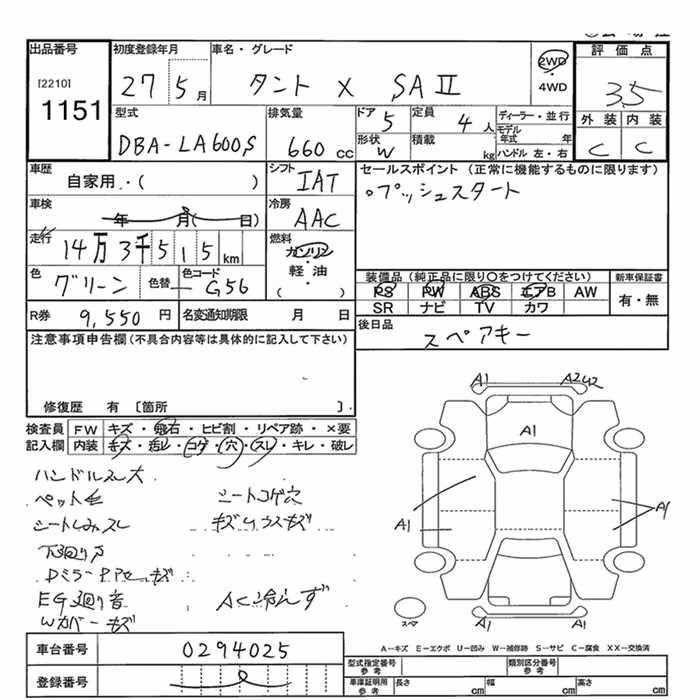 出品番号 初度登録年月 車名・グレード 2WD 4WD 評価点
[2210]
1151 27 5月 タント X SAⅡ 3.5
型式 排気量 ドア 定員 ディーラー・並行 外装 内装
DBA-LA600S 660cc 5 4人 モデル年式 年 C C
形状 W 積載 kg ハンドル 左・右
車歴 シフト セールスポイント (正常に機能するものに限ります)
自家用・( ) IAT 。プッシュスタート
車検 冷房
年 月( 日) AAC
走行 燃料
14万3千515km ガソリン・軽油・( )
色 色替 色コード 装備品 (純正品に限り〇をつけてください) 新車保証書
グリーン G56 PS PW ABS エアB AW 有・無
SR ナビ TV カワ
R券 9,550円 名変通知期限 月 日 後日品
スペアキー
注意事項申告欄(不具合内容等は具体的に記入して下さい)
修復歴 有 〔箇所 〕.
検査員 FW キズ・飛石・ヒビ割・リペア跡・×要
記入欄 内装 キズ・汚レ・コゲ・穴・スレ・キレ・破レ
ハンドルスレ大
ペット毛 シートコゲ穴
シートしみスレ
下廻りサ
EG廻り音 AC冷えず
Wカバーキズ
A1 A2 U2
A1
A1 A1
スペア A1 A1
A-キズ E-エクボ U-凹み W-補修跡 S-サビ C-腐食 XX-交換済
車台番号 0294025
型式指定番号 参考 類別区分番号 参考
登録番号 車庫証明用 参考 長さ cm 幅 cm 高さ cm